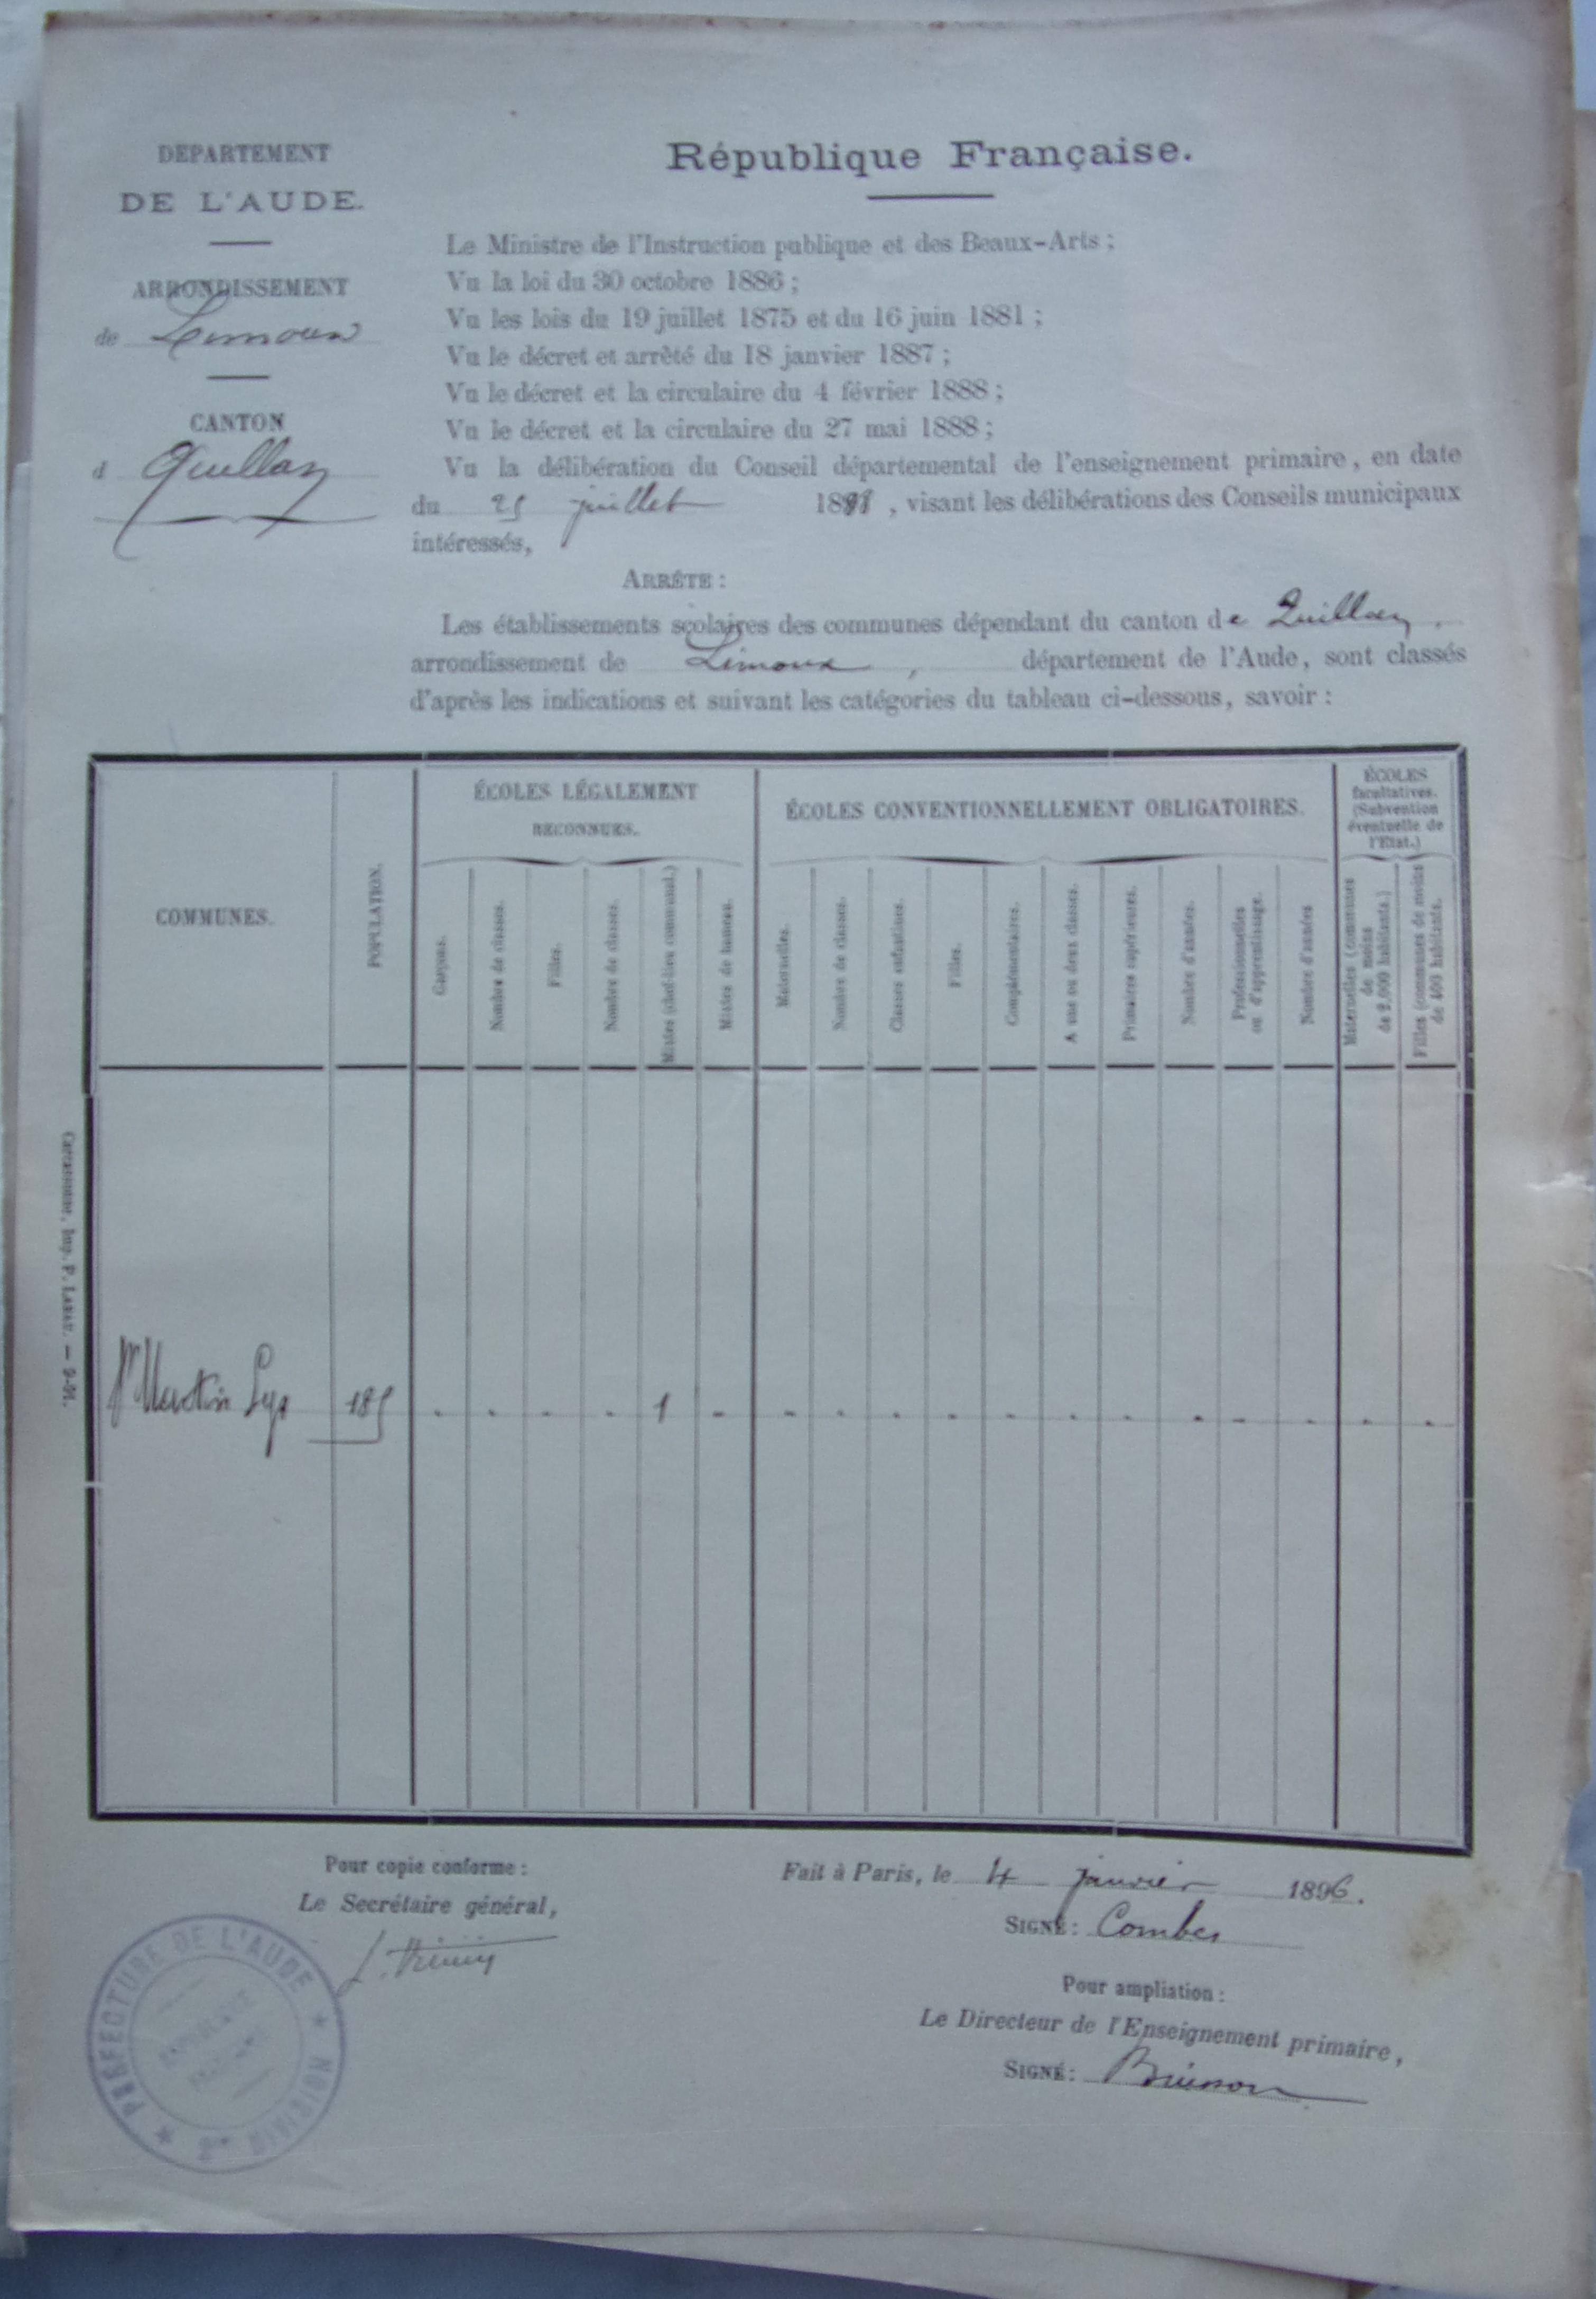 DEPARTEMENT
DE L'AUDE.
ARRONDISSEMENT
de Limoux
CANTON
d Quillan
République Française.
Le Ministre de l'Instruction publique et des Beaux-Arts ;
Vu la loi du 30 octobre 1886 ;
Vu les lois du 19 juillet 1875 et du 16 juin 1881 ;
Vu le décret et arrêté du 18 janvier 1887 ;
Vu le décret et la circulaire du 4 février 1888 ;
Vu le décret et la circulaire du 27 mai 1888 ;
Vu la délibération du Conseil départemental de l'enseignement primaire, en date
du 25 juillet , visant les délibérations des Conseils municipaux
intéressés,
ARRÊTE :
Les établissements scolaires des communes dépendant du canton de Quillan,
arrondissement de Limoux, département de l'Aude, sont classés
d'après les indications et suivant les catégories du tableau ci-dessous, savoir :
COMMUNES.
POPULATION.
ÉCOLES LÉGALEMENT
RECONNUES.
Garçons.
Nombre de classes.
Filles.
Nombre de classes.
Mixtes (chef-lieu communal.)
Mixtes de hameau.
ÉCOLES CONVENTIONNELLEMENT OBLIGATOIRES.
Maternelles.
Nombre de classes.
Classes enfantines.
Filles.
Complémentaires.
A une ou deux classes.
Primaires supérieures.
Nombre d'années.
Professionnelles
ou d'apprentissage.
Nombre d'années
ÉCOLES
facultatives.
(Subvention
éventuelle de
l'Etat.)
Maternelles (communes
de moins
de 2,000 habitants.)
Filles (communes de moins
de 400 habitants.
St Martin Lys 185 . . . . 1 - - . . . . . . . - . . .
Pour copie conforme :
Le Secrétaire général,
Fait à Paris, le 4 janvier 1896.
SIGNÉ : Combes
Pour ampliation :
Le Directeur de l'Enseignement primaire,
SIGNÉ : Buisson
PRÉFECTURE DE L'AUDE
Carcassonne, Imp. P. LABAU. — 9-91.